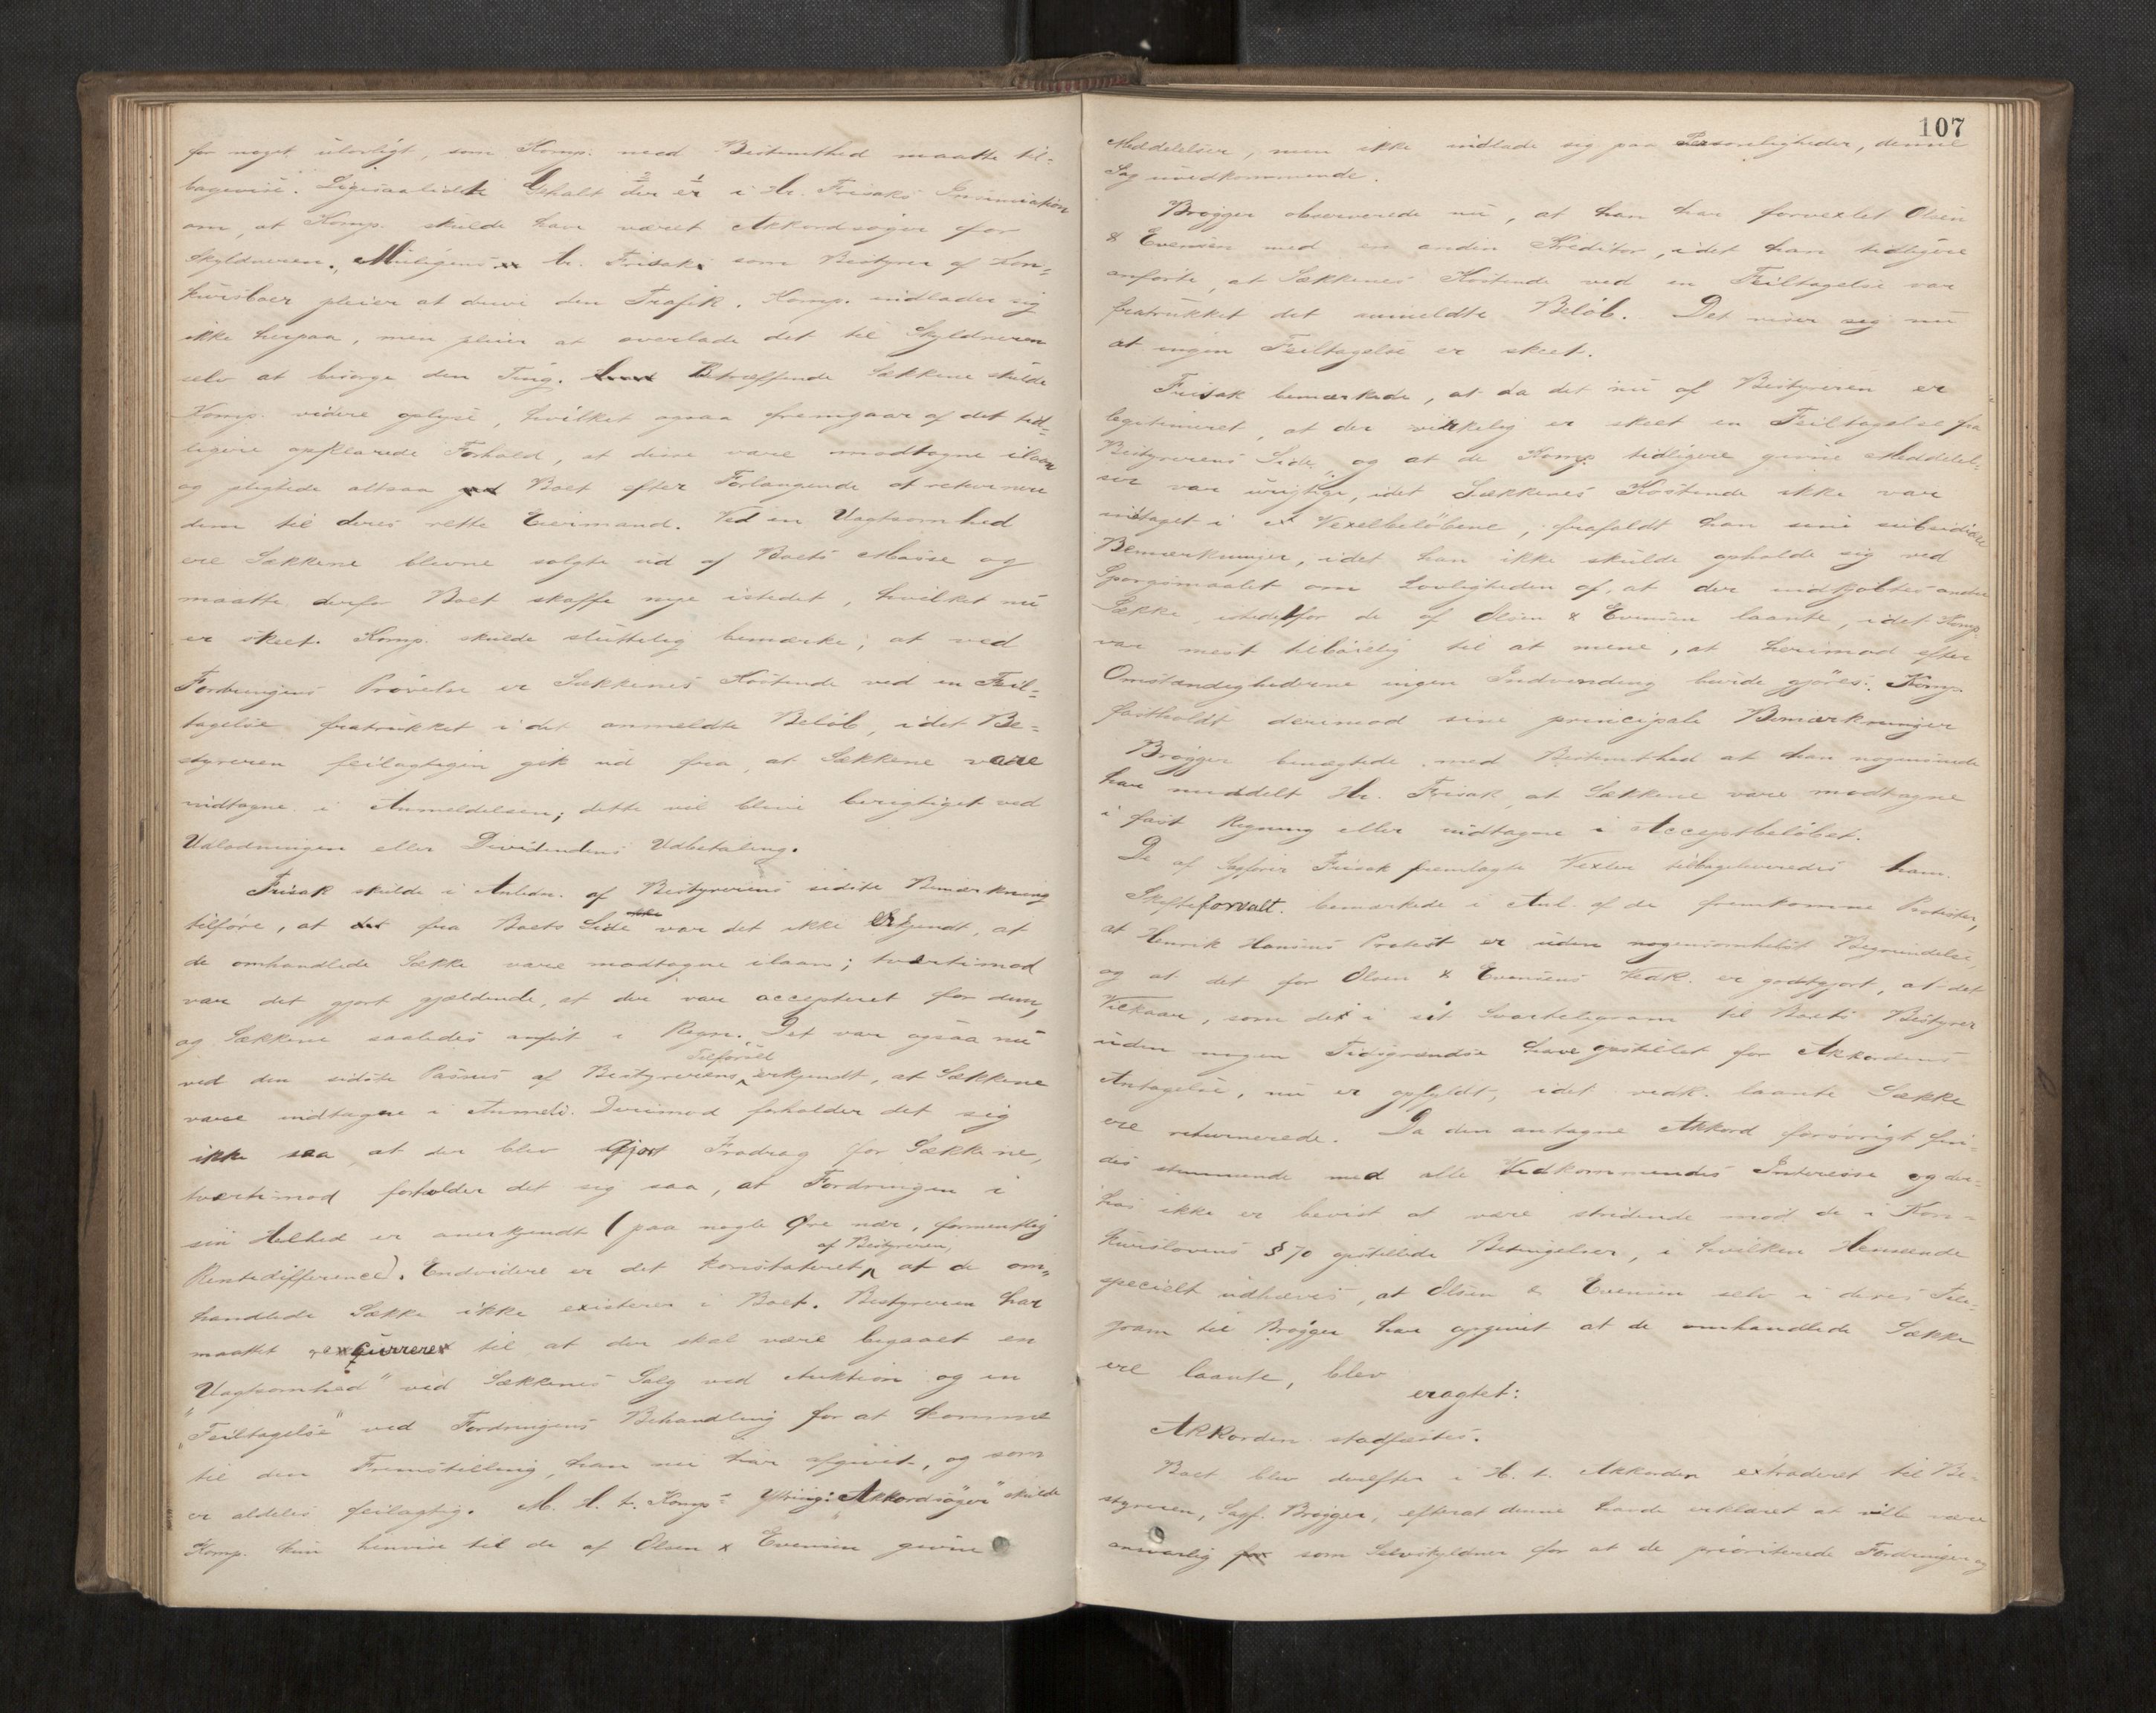 for noget ulovligt, som Komp. med Bestemthed maatte til-
bagevise. Ligesaalidet Gehalt der er i Hr. Frisaks Insinuation
om, at Komp. skulde have været Akkordsøger for
Skyldneren. Muligens Hr. Frisak som Bestyrer af Kon-
kursboer pleier at drive den Trafik. Komp. indlader sig
ikke herpaa, men pleier at overlade det til Skyldneren
selv at besørge den Ting. Betræffende Sækkene skulde
Komp. videre oplyse, hvilket ogsaa fremgaar af det tid-
ligere opklarede Forhold, at disse vare modtagne ilaan
og pligtede altsaa Boet efter Forlangende at returnere
dem til deres rette Eiermand. Ved en Uagtsomhed
ere Sækkene blevne solgte ud af Boets Masse og
maatte derfor Boet skaffe nye istedet, hvilket nu
er skeet. Komp. skulde sluttelig bemærke, at ved
Fordringens Prøvelse er Sækkenes Kostende ved en Feil-
tagelse fratrukket i det anmeldte Beløb, idet Be-
styreren feilagtigen gik ud fra, at Sækkene vare
indtagne i Anmeldelsen; dette vil blive berigtiget ved
Udlodningen eller Dividendens Udbetaling.
Frisak skulde i Anledn. af Bestyrerens sidste Bemærkning
tilføre, at fra Boets Side var det ikke erkjendt, at
de omhandlede Sække vare modtagne ilaan; tvertimod
var det gjort gjældende, at der var accepteret for dem,
og Sækkene saaledes anført i Regn. Det var ogsaa nu
ved den sidste Passus af Bestyrerens Tilførsel erkjendt, at Sækkene
vare indtagne i Anmeld. Derimod forholder det sig
ikke saa at der blev gjort Fradrag for Sækkene,
tvertimod forholder det sig saa, at Fordringen i
sin Helhed er anerkjendt (paa nogle Øre nær, formentlig
Rentedifference). Endvidere er det konstateret af Bestyreren, at de om-
handlede Sække ikke existerer i Boet. Bestyreren har
maattet recurrere til, at der skal være begaaet en
"Uagtsomhed" ved Sækkenes Salg ved Auktion og en
"Feiltagelse" ved Fordringens Behandling for at komme
til den Fremstilling, han nu har afgivet, og som
er aldeles feilagtig. M. H. t. Komp.s Yttring: "Akkordsøger" skulde
Komp. kun henvise til de af Olsen & Evensen givne
107
Meddelelser, men ikke indlade sig paa Personligheder, denne
Sag uvedkommende.
Brøgger observerede nu, at han har forvexlet Olsen
& Evensen med en anden Kreditor, idet han tidligere
anførte, at Sækkenes Kostende ved en Feiltagelse var
fratrukket det anmeldte Beløb. Det viser sig nu
at ingen Feiltagelse er skeet.
Frisak bemærkede, at da det nu af Bestyreren er
legitimeret, at der virkelig er skeet en Feiltagelse fra
Bestyrerens Side, og at de Komp. tidligere givne Meddelel-
ser var urigtige, idet Sækkenes Kostende ikke var
indtaget i Vexelbeløbene, frafaldt han sine subsidiære
Bemærkninger, idet han ikke skulde opholde sig ved
Spørgsmaalet om Lovligheden af, at der indkjøbtes andre
Sække istedetfor de af Olsen & Evensen laante, idet Komp.
var mest tilbøielig til at mene, at herimod efter
Omstændighederne ingen Indvending burde gjøres. Komp.
fastholdt derimod sine principale Bemærkninger
Brøgger benægtede med Bestemthed at han nogensinde
har meddelt Hr. Frisak, at Sækkene vare modtagne
i fast Regning eller indtagne i Acceptbeløbet.
De af Sagfører Frisak fremlagte Vexler tilbageleveredes ham.
Skifteforvalt. bemærkede i Anl. af de fremkomne Protester,
at Henrik Hansens Protest er uden nogensomhelst Begrundelse,
og at det for Olsen & Evensens Vedk. er godtgjort, at det
Vilkaar, som de i sit Svartelegram til Boets Bestyrer
uden nogen Tidsgrændse have opstillet for Akkordens
Antagelse, nu er opfyldt, idet vedk. laante Sække
ere returnerede. Da den antagne Akkord forøvrigt fin-
des stemmende med alle Vedkommendes Interesse og der-
hos ikke er bevist at være stridende mod de i Kon-
kurslovens § 70 opstillede Betingelser, i hvilken Henseende
specielt udhæves, at Olsen & Evensen selv i deres Tele-
gram til Brøgger have opgivet at de omhandlede Sække
ere laante, blev
eragtet:
Akkorden stadfæstes.
Boet blev derefter i H. t. Akkorden extraderet til Be-
styreren, Sagf. Brøgger, efterat denne havde erklæret at ville være
ansvarlig som Selvskyldner for at de prioriterede Fordringer og